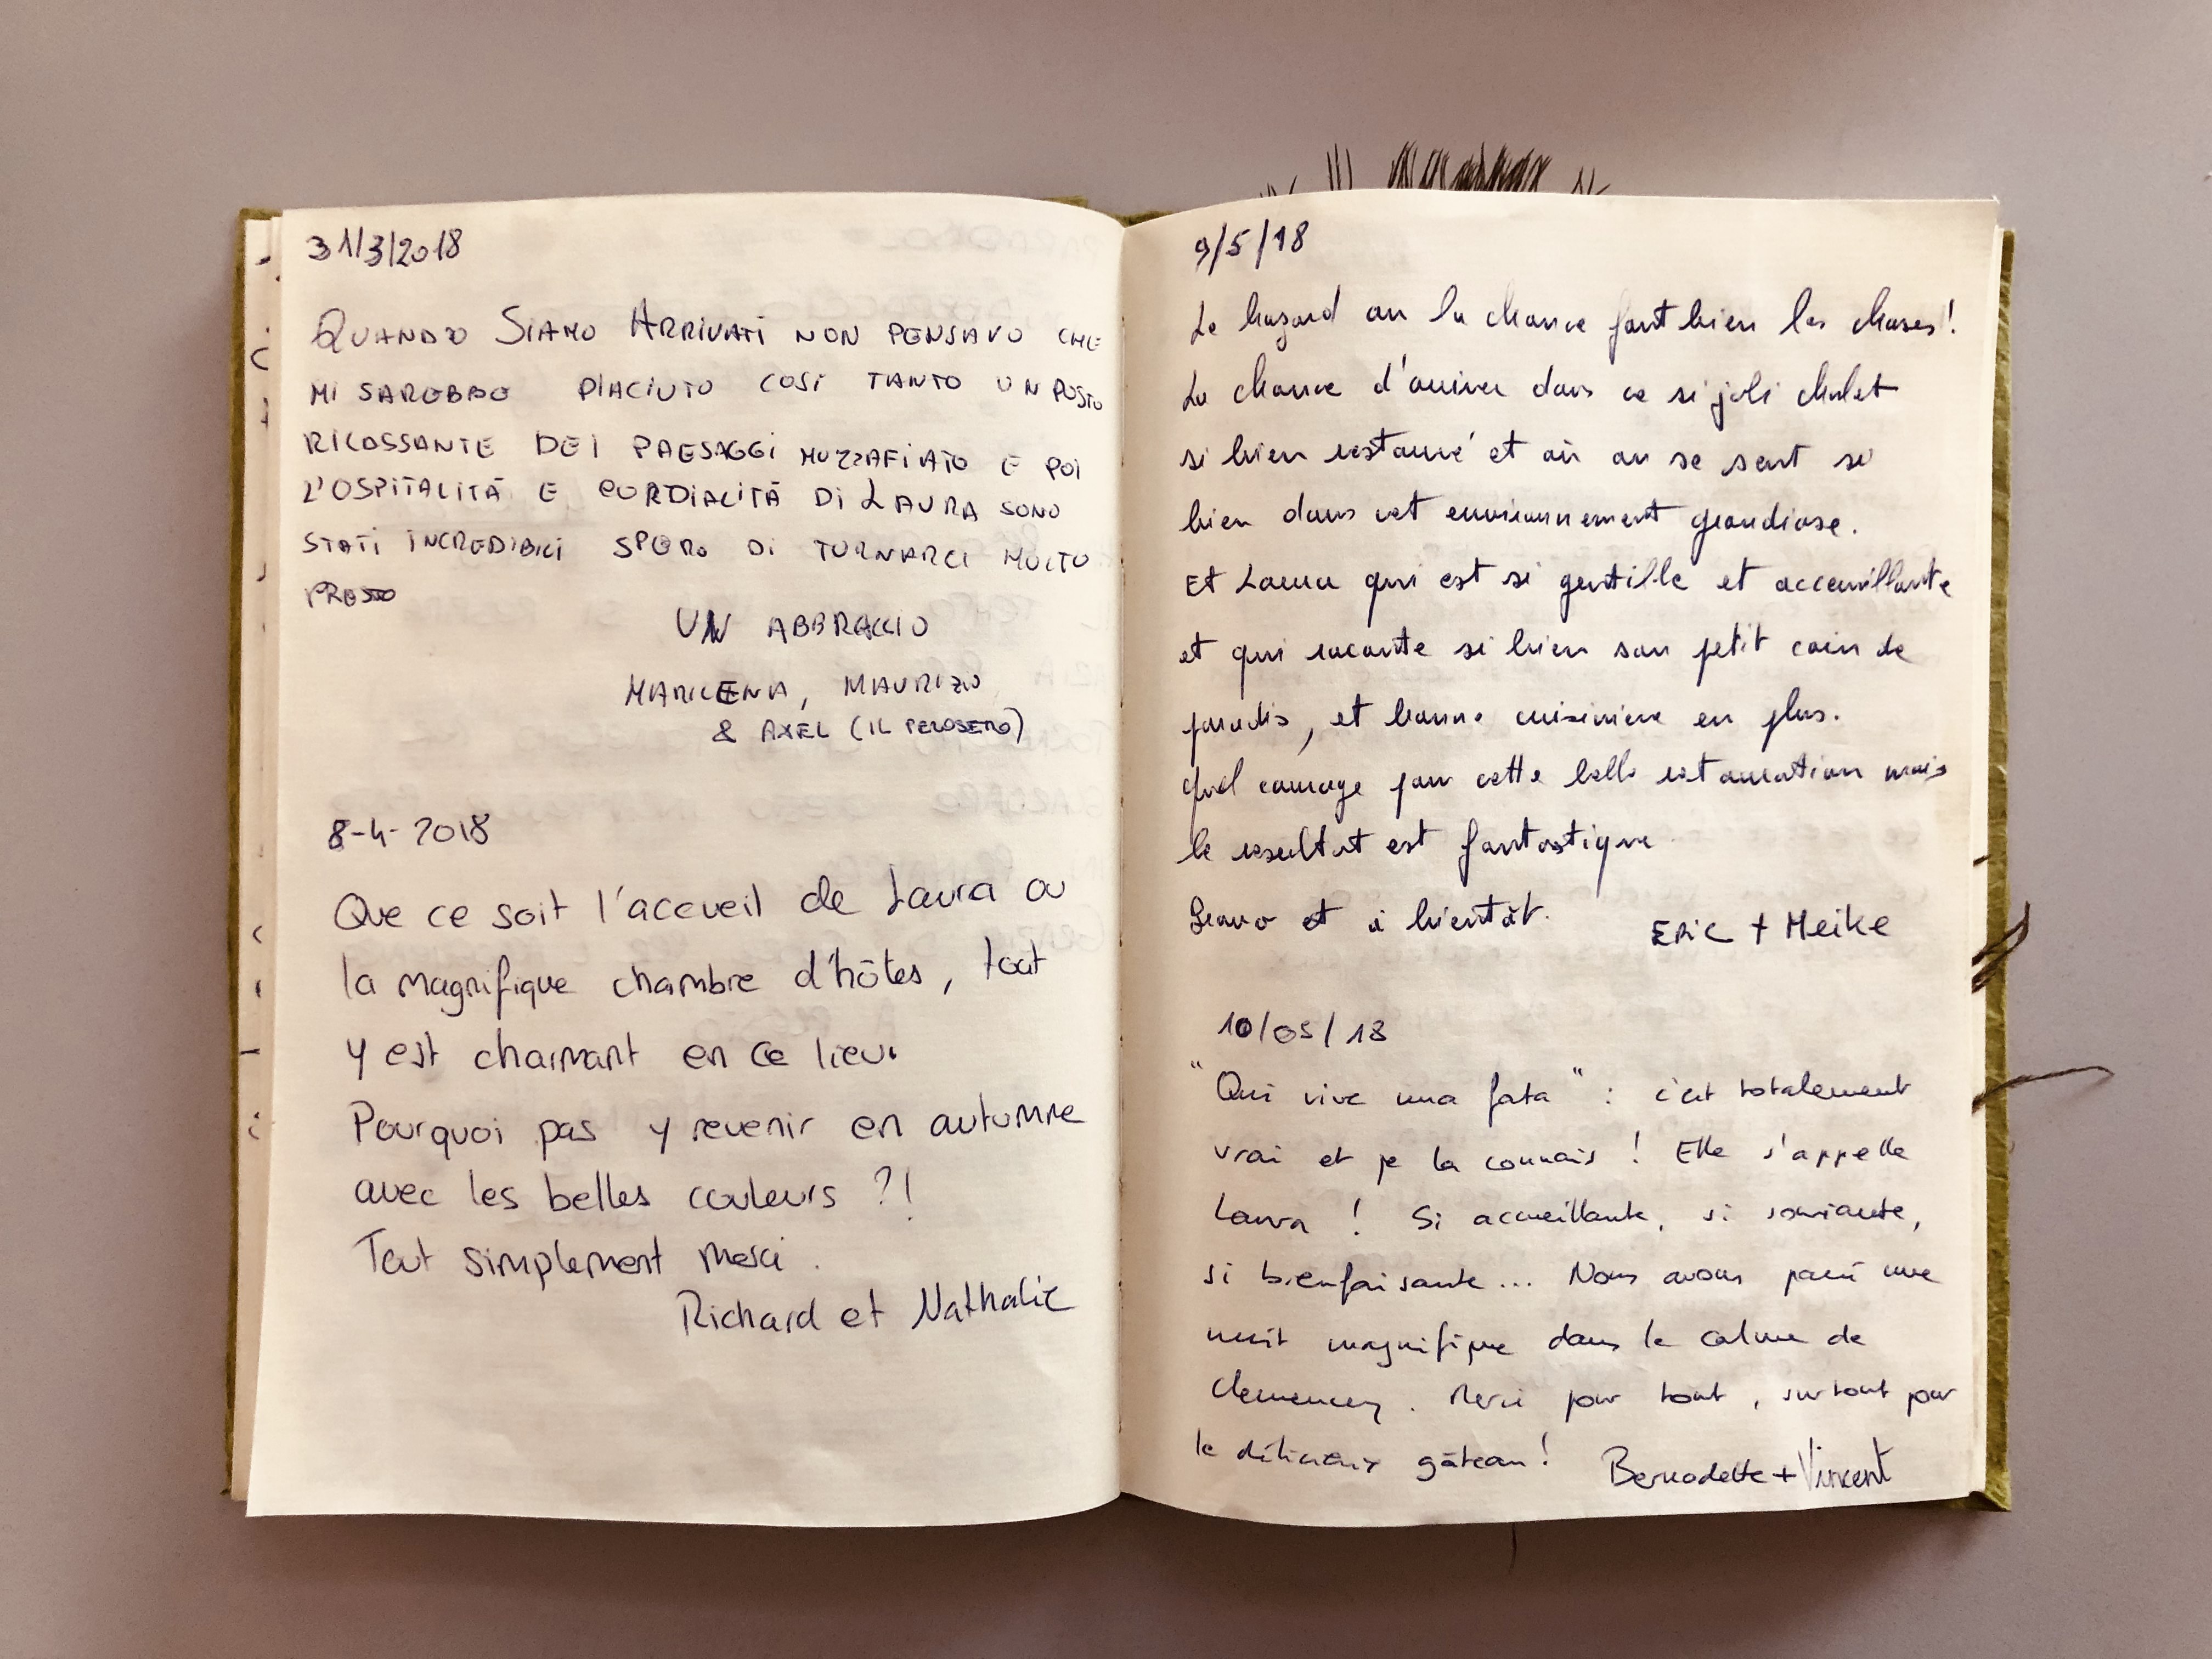 31/3/2018
QUANDO SIAMO ARRIVATI NON PENSAVO CHE
MI SAREBBE PIACIUTO COSÌ TANTO UN POSTO
RILASSANTE DEI PAESAGGI MOZZAFIATO E POI
L'OSPITALITÀ E CORDIALITÀ DI LAURA SONO
STATI INCREDIBILI SPERO DI TORNARCI MOLTO
PRESTO
UN ABBRACCIO
MARILENA, MAURIZIO
& AXEL (IL PELOSETTO)
8-4-2018
Que ce soit l'accueil de Laura ou
la magnifique chambre d'hôtes, tout
y est charmant en ce lieu.
Pourquoi pas y revenir en automne
avec les belles couleurs ?!
Tout simplement merci.
Richard et Nathalie
9/5/18
Le hazard ou la chance font bien les choses!
La chance d'arriver dans ce si joli chalet
si bien restauré et où on se sent si
bien dans cet environnement grandiose.
Et Laura qui est si gentille et acceuillante
et qui raconte si bien son petit coin de
paradis, et bonne cuisinière en plus.
Quel courage pour cette belle restauration mais
le resultat est fantastique
Bravo et à bientôt.
Eric + Meike
10/05/18
"Qui vive una fata" : c'est totalement
vrai et je la connais ! Elle s'appelle
Laura ! Si accueillante, si souriante,
si bienfaisante... Nous avons passé une
nuit magnifique dans le calme de
Clemencey. Merci pour tout, surtout pour
le délicieux gâteau!
Bernadette + Vincent